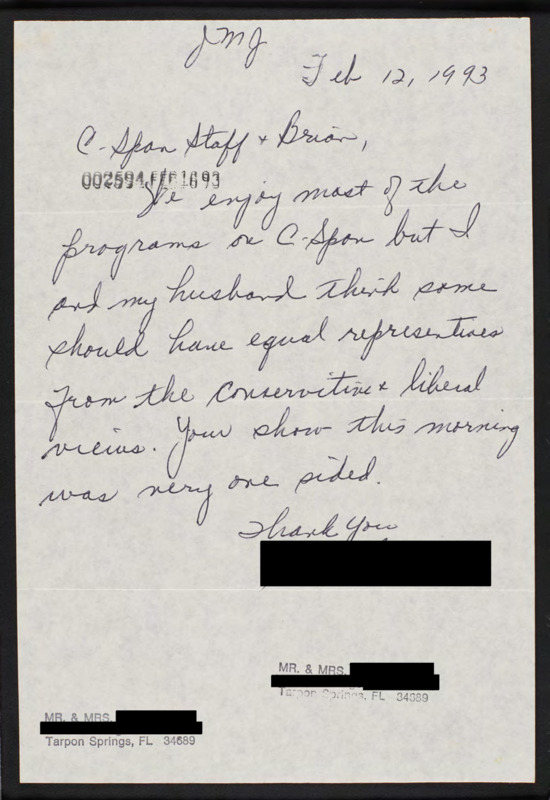 JMJ
Feb 12, 1993
C-Span Staff & Brian,
002594 FEB 16 93
We enjoy most of the
programs on C-Span but I
and my husband think some
should have equal representives
from the conservitive & liberal
views. Your show this morning
was very one sided.
Thank You
MR. & MRS.
Tarpon Springs, FL 34689
MR. & MRS.
Tarpon Springs, FL 34689